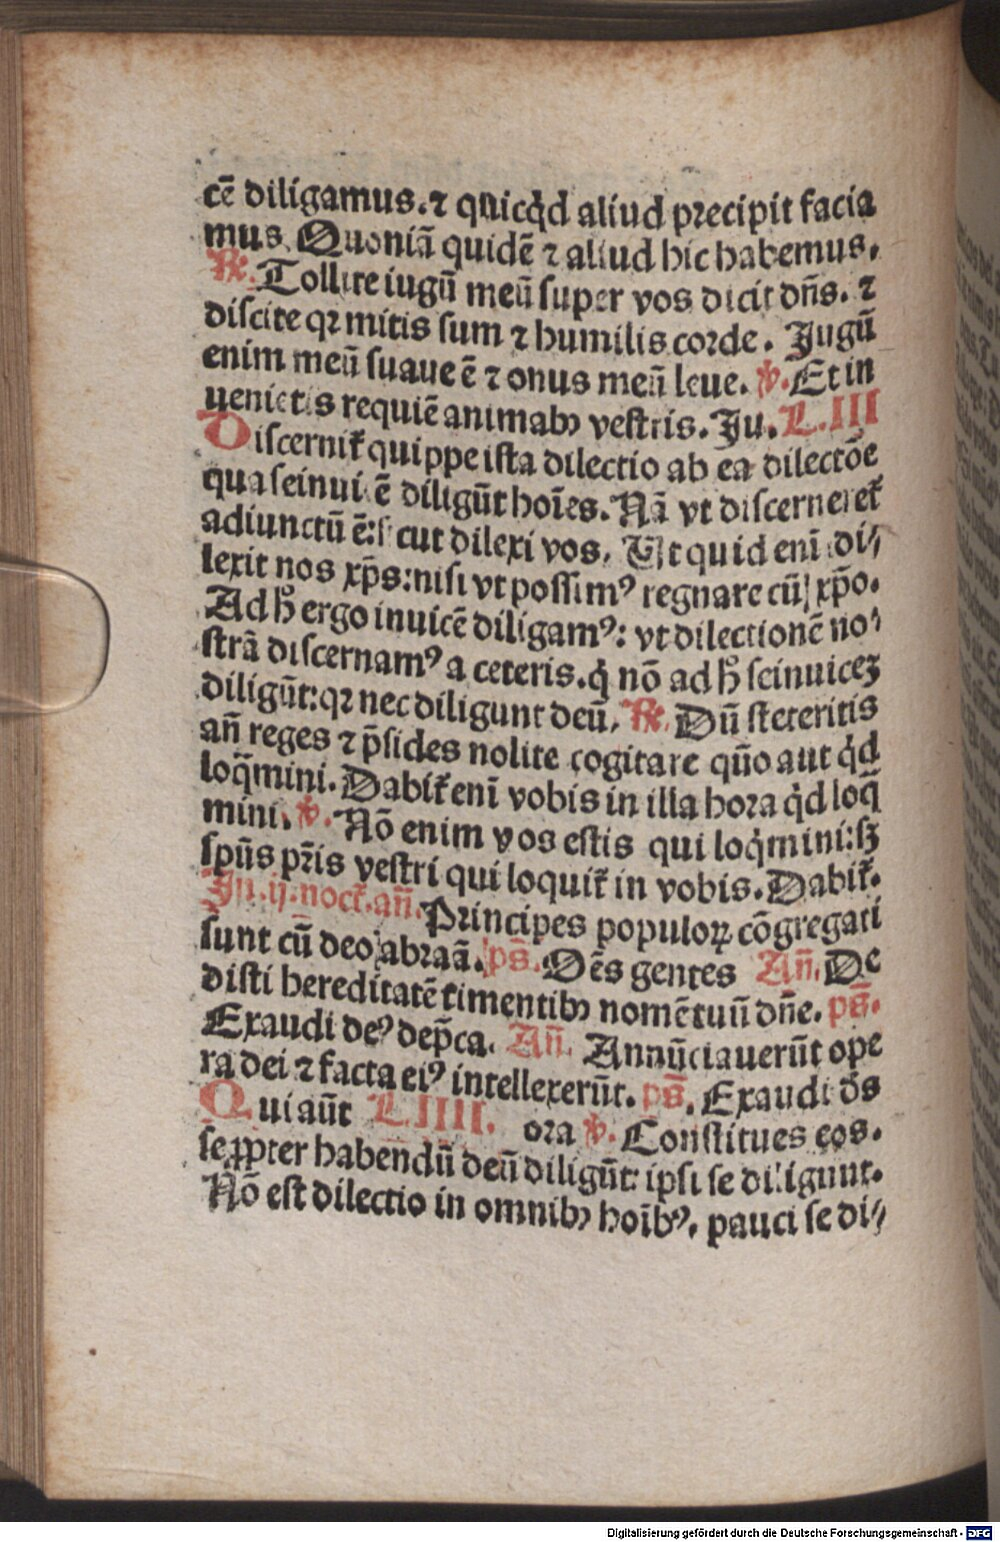 cē diligamus. ⁊ quicq̇d aliud precipit facia
mus. Quoniā quidē ⁊ aliud hic habemus.
℟. Tollite iugū meū super vos dicit dn̄s. ⁊
discite qꝛ mitis sum ⁊ humilis corde. Jugū
enim meū suaue ē ⁊ onus meū leue. ℣. Et in
uenietis requiē animabꝯ vestris. Ju. L. III
Discernit᷑ quippe ista dilectio ab ea dilectōe
qua seinuicē diligūt hoīes. Nā vt discerneret᷑
adiunctū ē: sicut dilexi vos. Vt quid enī di⸗
lexit nos xp̄s: nisi vt possimꝰ regnare cū xp̄o.
Ad h̄ ergo inuicē diligamꝰ: vt dilectionē no⸗
strā discernamꝰ a ceteris. q̇ nō ad h̄ seinuiceꝫ
diligūt: qꝛ nec diligunt deū. ℟. Dū steteritis
an̄ reges ⁊ p̄sides nolite cogitare quō aut q̇d
loq̄mini. Dabit᷑ enī vobis in illa hora q̇d loq̄
mini. ℣. Nō enim vos estis qui loq̇mini: sꝫ
spūs pr̄is vestri qui loquit᷑ in vobis. Dabit᷑.
In. ij. noct᷑. an̄. Principes populoꝝ cōgregati
sunt cū deo abraā. ps̄. Oēs gentes An̄. De
disti hereditatē timentibꝯ nomē tuū dn̄e. ps̄.
Exaudi deꝰ dep̄ca. An̄. Annūciauerūt ope
ra dei ⁊ facta eiꝰ intellexerūt. ps̄. Exaudi ds̄
Qui aūt L. IIII. ora ℣. Constitues eos.
se ꝓpter habendū deū diligūt: ipsi se diligunt.
Nō est dilectio in omnibꝯ hoībꝰ. pauci se di⸗
Digitalisierung gefördert durch die Deutsche Forschungsgemeinschaft - DFG